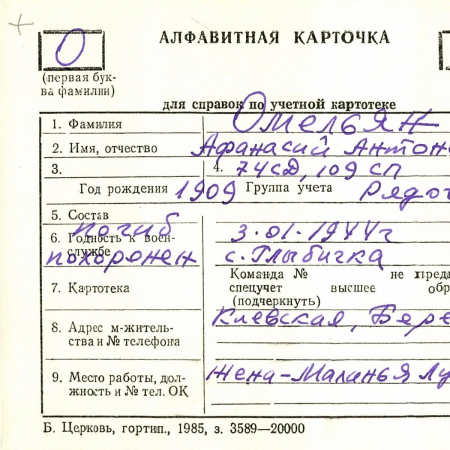 О
АЛФАВИТНАЯ КАРТОЧКА
(первая бук-
ва фамилии)
для справок по учетной картотеке
1. Фамилия Омельян
2. Имя, отчество Афанасий Антоно
3. 4. 74 сд, 109 сп
Год рождения 1909 Группа учета Рядо
5. Состав
погиб
6. Годность к воен- 3.01.1944г
службе похоронен с. Глыбичка
Команда № не пред
7. Картотека спецучет высшее об
(подчеркнуть)
8. Адрес м-житель- Киевская, Бере
ства и № телефона
9. Место работы, дол- жена-Маланья Лу
жность и № тел. ОК
Б. Церковь, гортип., 1985, з. 3589—20000